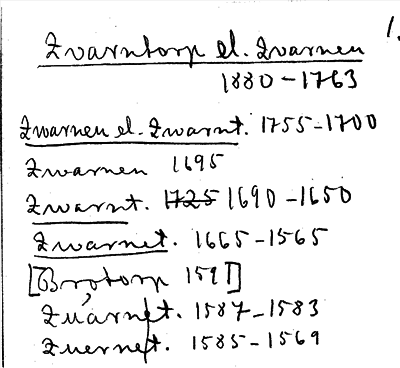 1.
Zvarntorp el. Zvarnen
1880-1763
Zwarnen el. Zwarnt. 1755-1700
Zwarnen 1695
Zwarnt. 1725 1690-1650
Zwarnet. 1665-1565
[Brotorp 1591]
Zuárnet. 1587-1583
Zuernet. 1585-1569